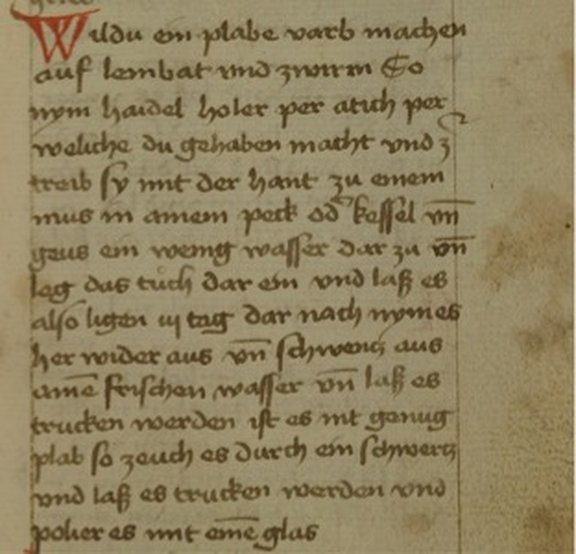 Wildu ein plabe varb machen
auf leinbat vnd zwirm So
nym haidel holer per atich per
weliche du gehaben macht vnd z
treib sy mit der hant zu einem
mus in ainem peck od̉ kessel vn̄
geus ein wenig wasser dar zu vn̄
leg das tuch dar ein vnd laß es
also ligen iij tag dar nach nym es
her wider aus vn̄ schwencz aus
aine̅ frischen wasser vn̄ laß es
trucken werden ist es nit genug
plab so zeuch es durch ein schwercz
vnd laß es trucken werden vnd
polier es mit eine̅ glas